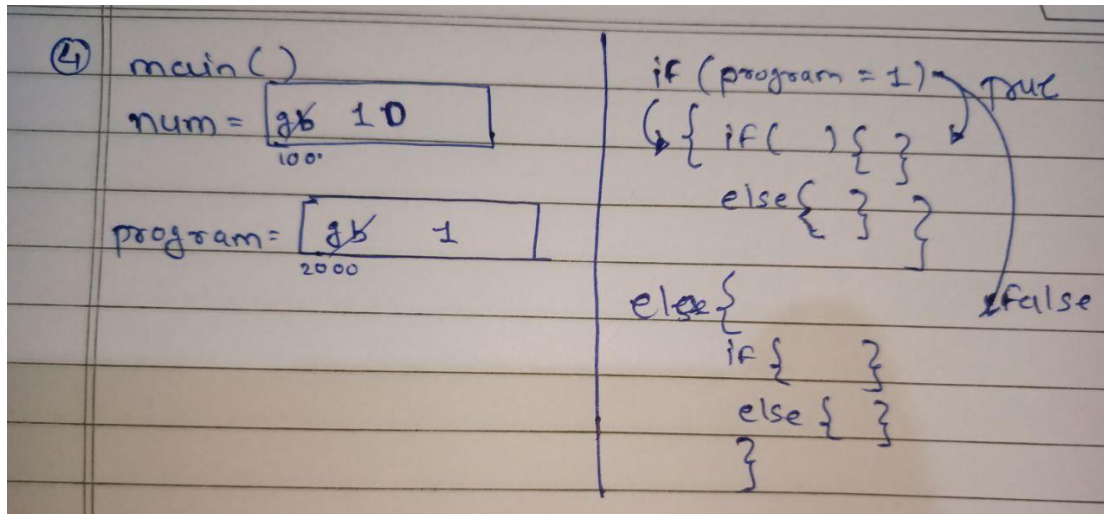 ④ main()
num = gb 10
100.
program = gb 1
2000
if (program = 1) True
{ if( ) { }
else { } }
else { False
if { }
else { }
}